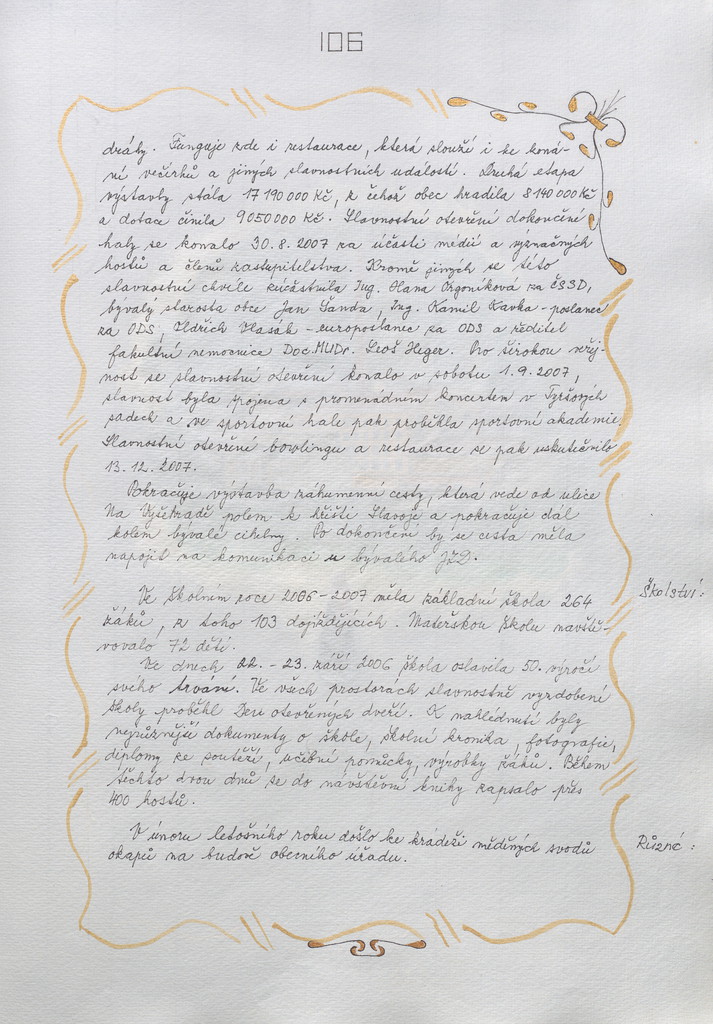 106
dráhy. Funguje zde i restaurace, která slouží i ke koná-
ní večírků a jiných slavnostních událostí. Druhá etapa
výstavby stála 17 190 000 Kč, z čehož obec hradila 8 140 000 Kč
a dotace činila 9 050 000 Kč. Slavnostní otevření dokončené
haly se konalo 30.8.2007 za účasti médií a význačných
hostů a členů zastupitelstva. Kromě jiných se této
slavnostní chvíle zúčastnila Ing. Hana Orgoníková za ČSSD,
bývalý starosta obce Jan Šanda, Ing. Kamil Kavka - poslanec
za ODS, Oldřich Vlasák - europoslanec za ODS a ředitel
fakultní nemocnice Doc. MUDr. Leoš Heger. Pro širokou veřej-
nost se slavnostní otevření konalo v sobotu 1.9.2007,
slavnost byla spojena s promenádním koncertem v Tyršových
sadech a ve sportovní hale pak proběhla sportovní akademie.
Slavnostní otevření bowlingu a restaurace se pak uskutečnilo
13.12.2007.
Pokračuje výstavba záhumenní cesty, která vede od ulice
Na Vyšehradě polem k hřišti Slavoje a pokračuje dál
kolem bývalé cihelny. Po dokončení by se cesta měla
napojit na komunikaci u bývalého JZD.
Školství:
Ve školním roce 2006-2007 měla základní škola 264
žáků, z toho 103 dojíždějících. Mateřskou školu navště-
vovalo 72 dětí.
Ve dnech 22. - 23. září 2006 škola oslavila 50. výročí
svého trvání. Ve všech prostorách slavnostně vyzdobené
školy proběhl Den otevřených dveří. K nahlédnutí byly
nejrůznější dokumenty o škole, školní kronika, fotografie,
diplomy ze soutěží, učební pomůcky, výrobky žáků. Během
těchto dvou dnů se do návštěvní knihy zapsalo přes
400 hostů.
Různé:
V únoru letošního roku došlo ke krádeži měděných svodů
okapů na budově obecního úřadu.